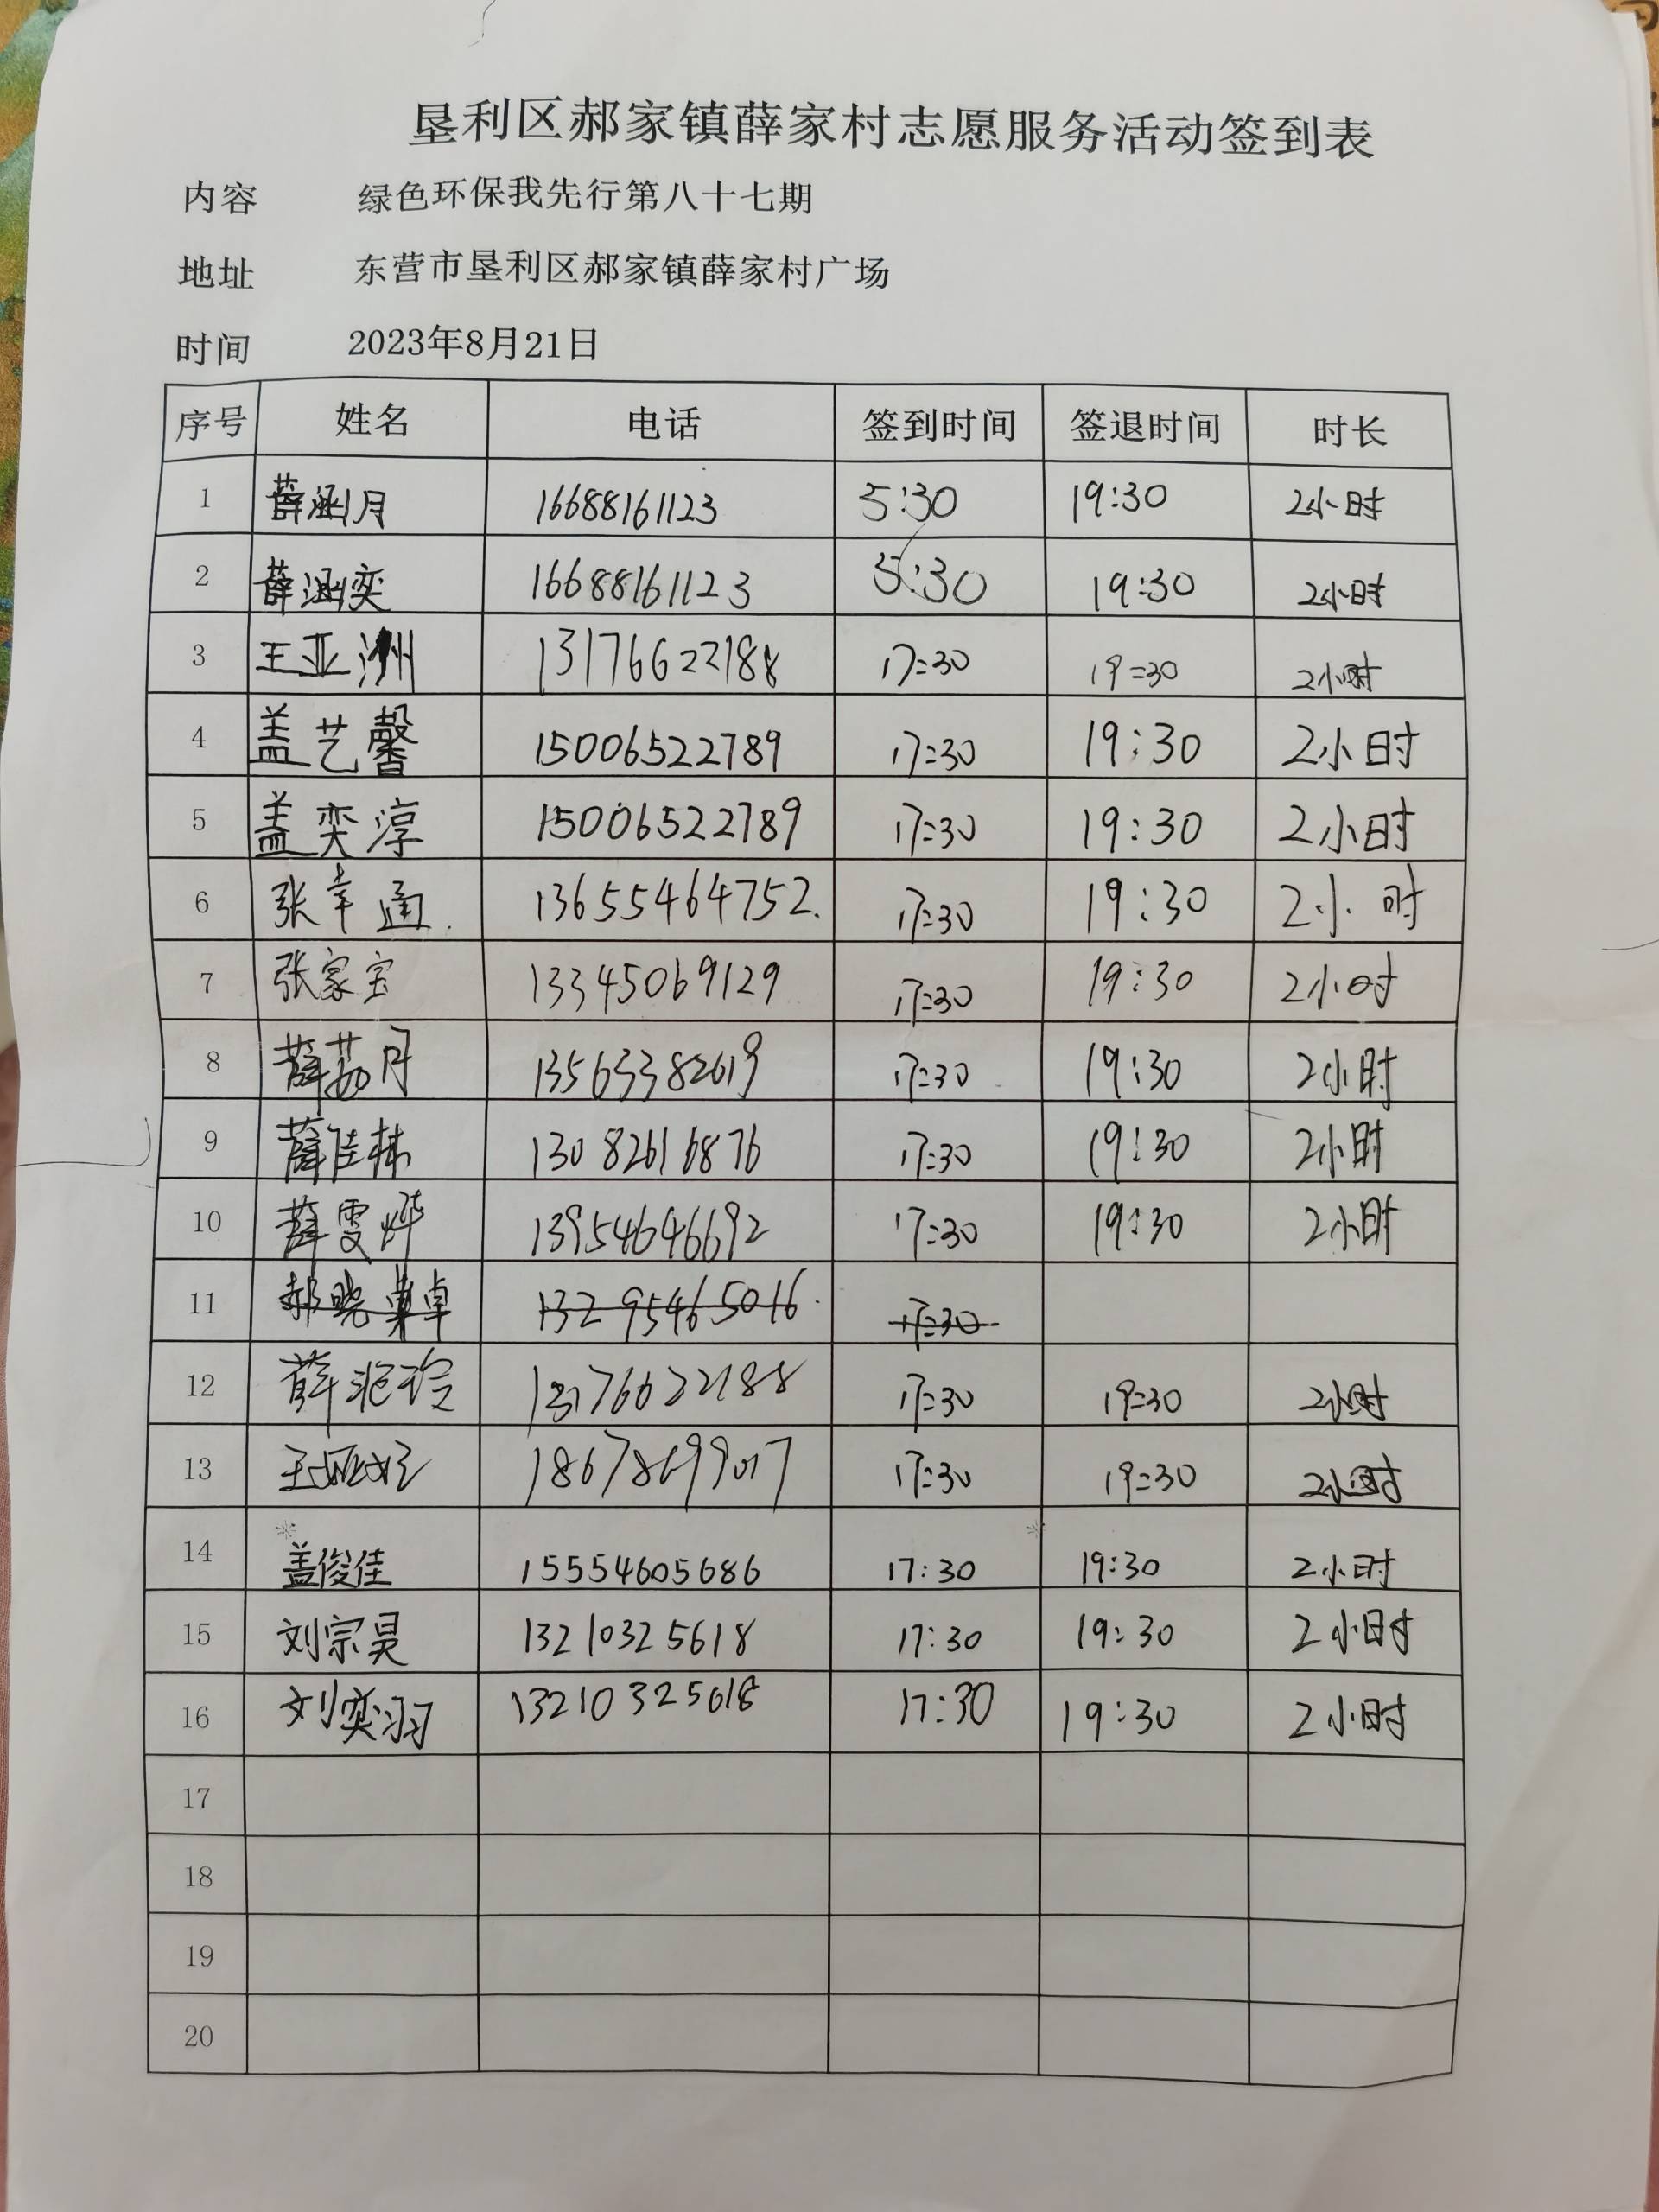 垦利区郝家镇薛家村志愿服务活动签到表
内容 绿色环保我先行第八十七期
地址 东营市垦利区郝家镇薛家村广场
时间 2023年8月21日
序号 姓名 电话 签到时间 签退时间 时长
1 薛涵月 16688161123 5:30 19:30 2小时
2 薛涵奕 16688161123 5:30 19:30 2小时
3 王亚洲 13176622188 17:30 19:30 2小时
4 盖艺馨 15006522789 17:30 19:30 2小时
5 盖奕淳 15006522789 17:30 19:30 2小时
6 张幸涵 13655464752. 17:30 19:30 2小时
7 张家宝 13345069129 17:30 19:30 2小时
8 薛荔月 13563382619 17:30 19:30 2小时
9 薛佳林 13082616876 17:30 19:30 2小时
10 薛雯烨 13954646692 17:30 19:30 2小时
11 郝晓 卓 13295465016 17:30
12 薛 玲 13176622188 17:30 19:30 2小时
13 王 18678699017 17:30 19:30 2小时
14 盖俊佳 15554605686 17:30 19:30 2小时
15 刘宗昊 13210325618 17:30 19:30 2小时
16 刘奕羽 13210325618 17:30 19:30 2小时
17
18
19
20